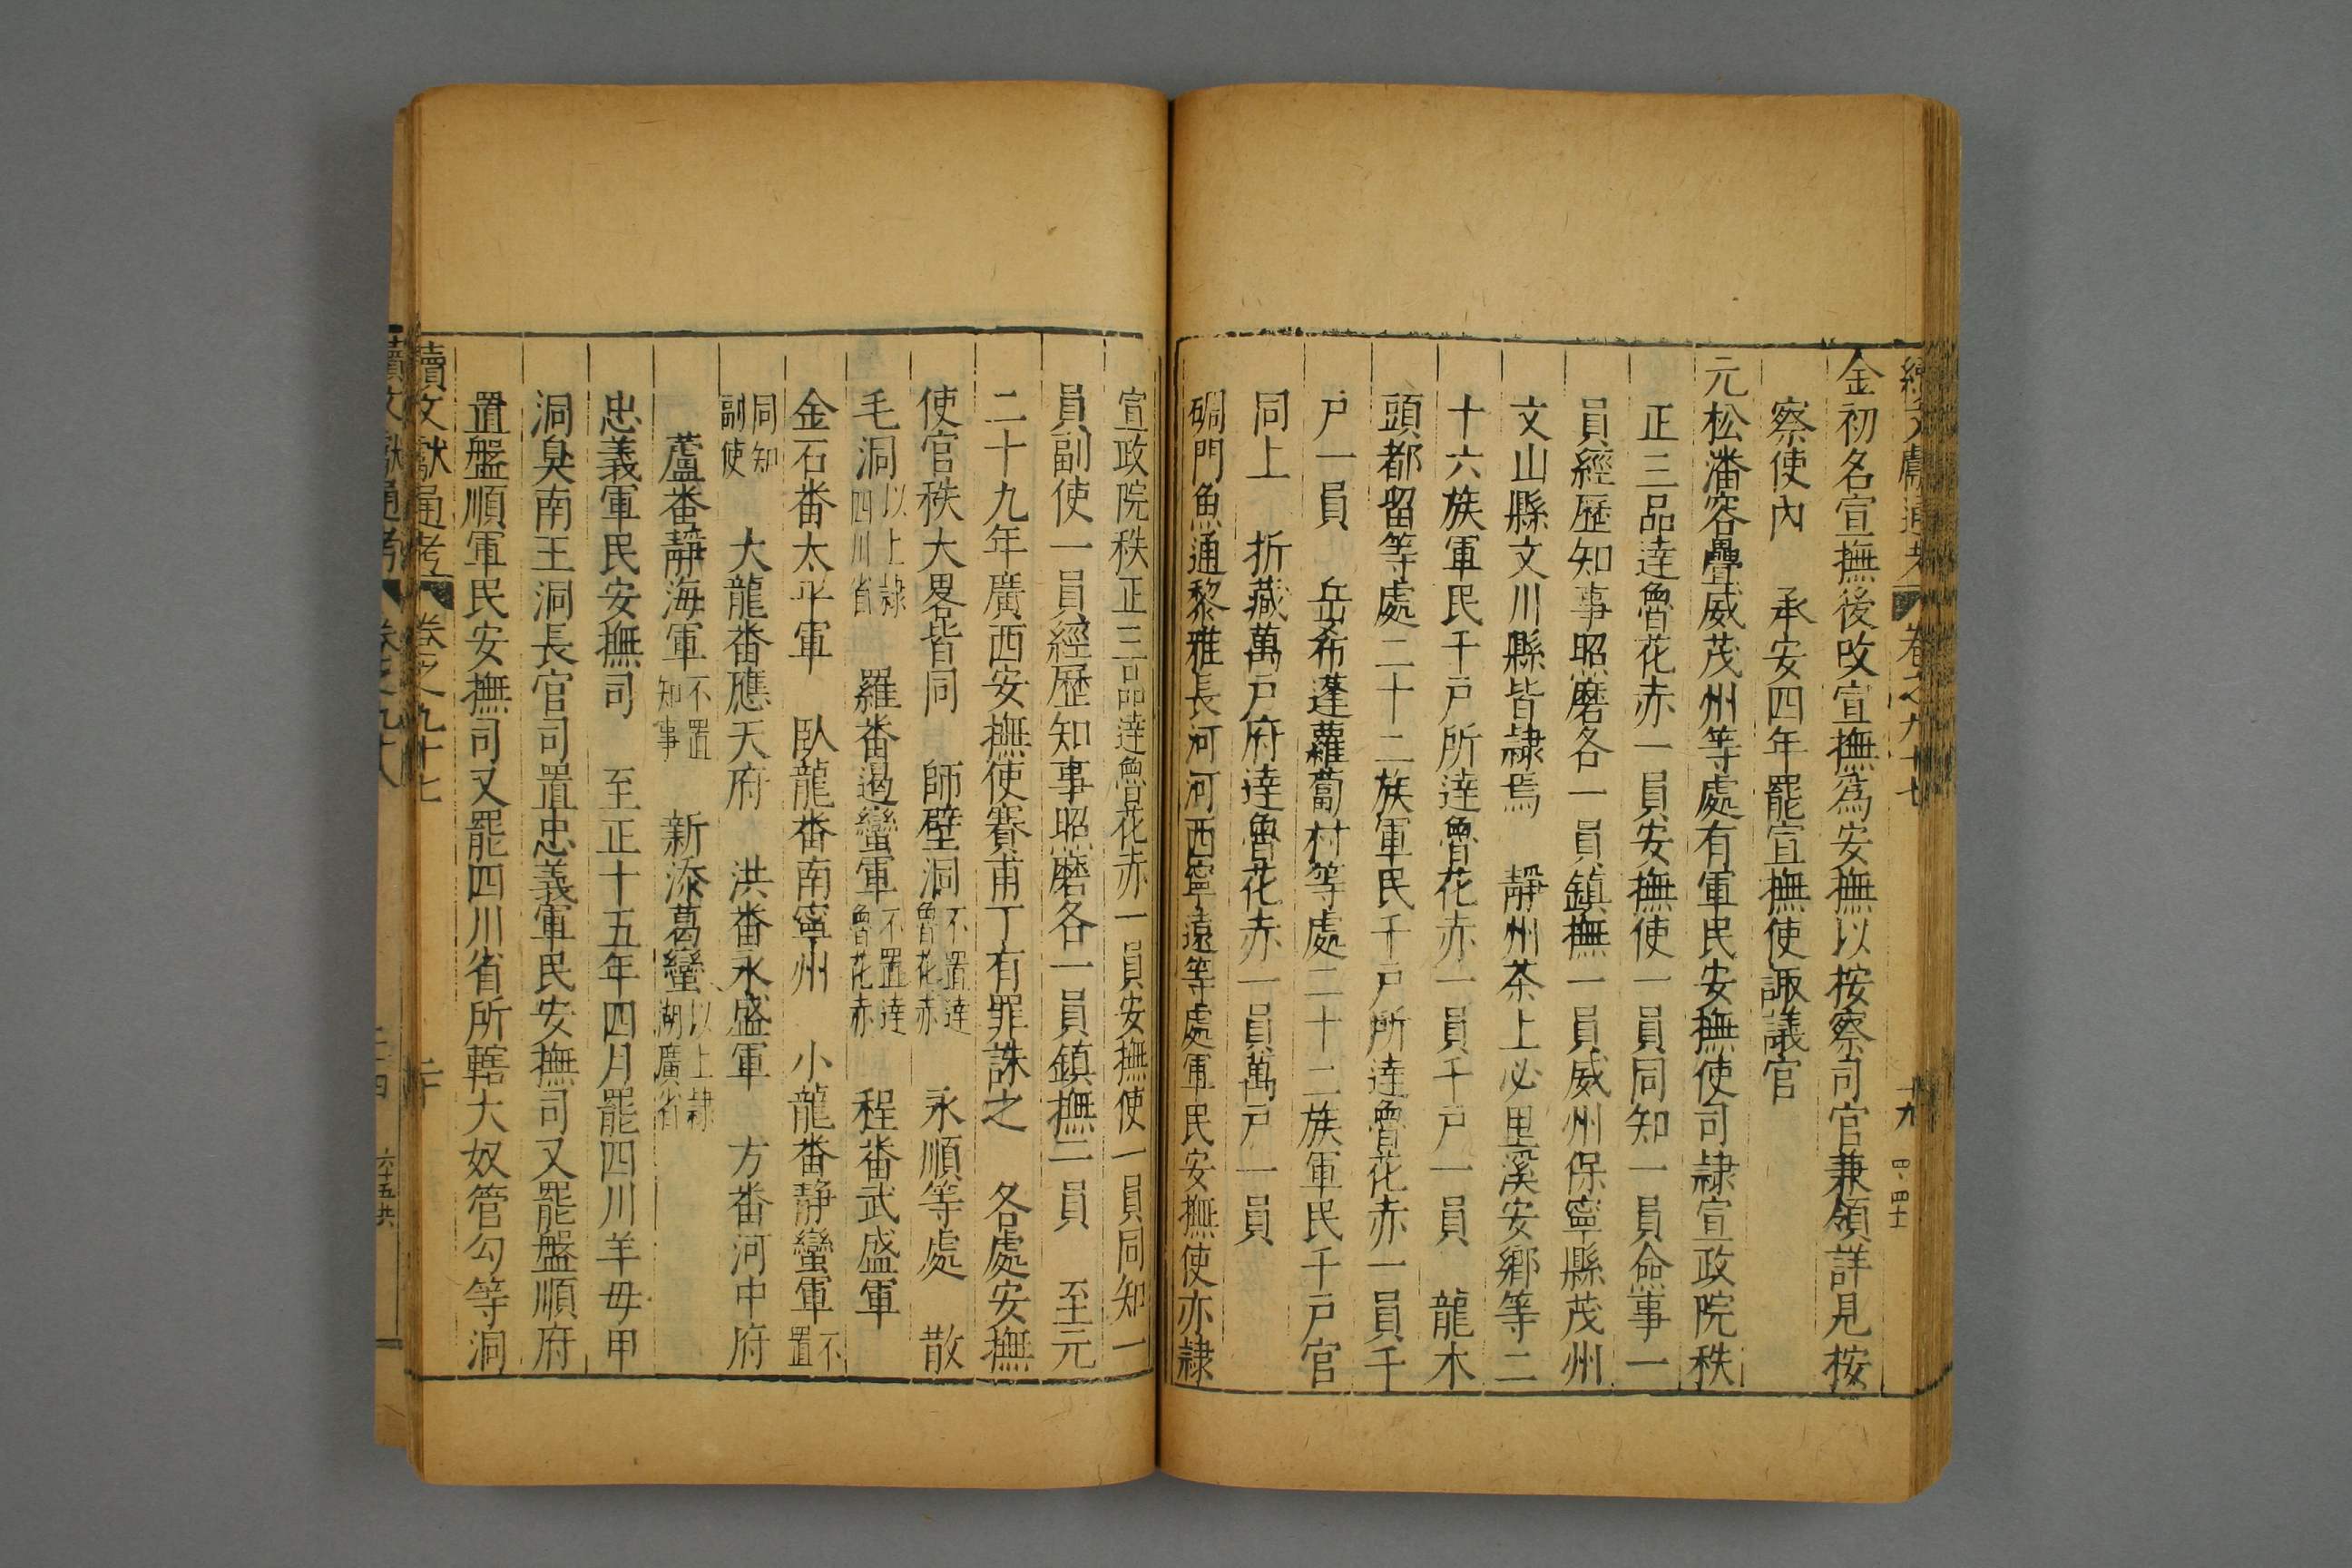 續文獻通考 卷之九十七 十九 四·四十
金初名宣撫後改宣撫爲安撫以按察司官兼領詳見按
察使內 承安四年罷宣撫使諏議官
元松潘客疊威茂州等處有軍民安撫使司隷宣政院秩
正三品達魯花赤一員安撫使一員同知一員僉事一
員經歷知事照磨各一員鎮撫一員威州保寧縣茂州
文山縣文川縣皆隷焉 靜州茶上必里溪安鄉等二
十六族軍民千戶所達魯花赤一員千戶一員 龍木
頭都留等處二十二族軍民千戶所達魯花赤一員千
戶一員 岳希蓬蘿蔔村等處二十二族軍民千戶官
同上 折藏萬戶府達魯花赤一員萬戶一員
碉門魚通黎雅長河河西寧遠等處軍民安撫使亦隷
宣政院秩正三品達魯花赤一員安撫使一員同知一
員副使一員經歷知事照磨各一員鎮撫二員 至元
二十九年廣西安撫使賽甫丁有罪誅之 各處安撫
使官秩大畧皆同 師壁洞不置達魯花赤 永順等處 散
毛洞以上隷四川省 羅番遏蠻軍不置達魯花赤 程番武盛軍
金石番太平軍 臥龍番南寧州 小龍番静蠻軍不置
同知副使 大龍番應天府 洪番永盛軍 方番河中府
蘆番靜海軍不置知事 新添葛蠻以上隷湖廣省
忠義軍民安撫司 至正十五年四月罷四川羊毋甲
洞臭南王洞長官司置忠義軍民安撫司又罷盤順府
置盤順軍民安撫司又罷四川省所轄大奴管勾等洞
續文獻通考 卷之九十七 二十